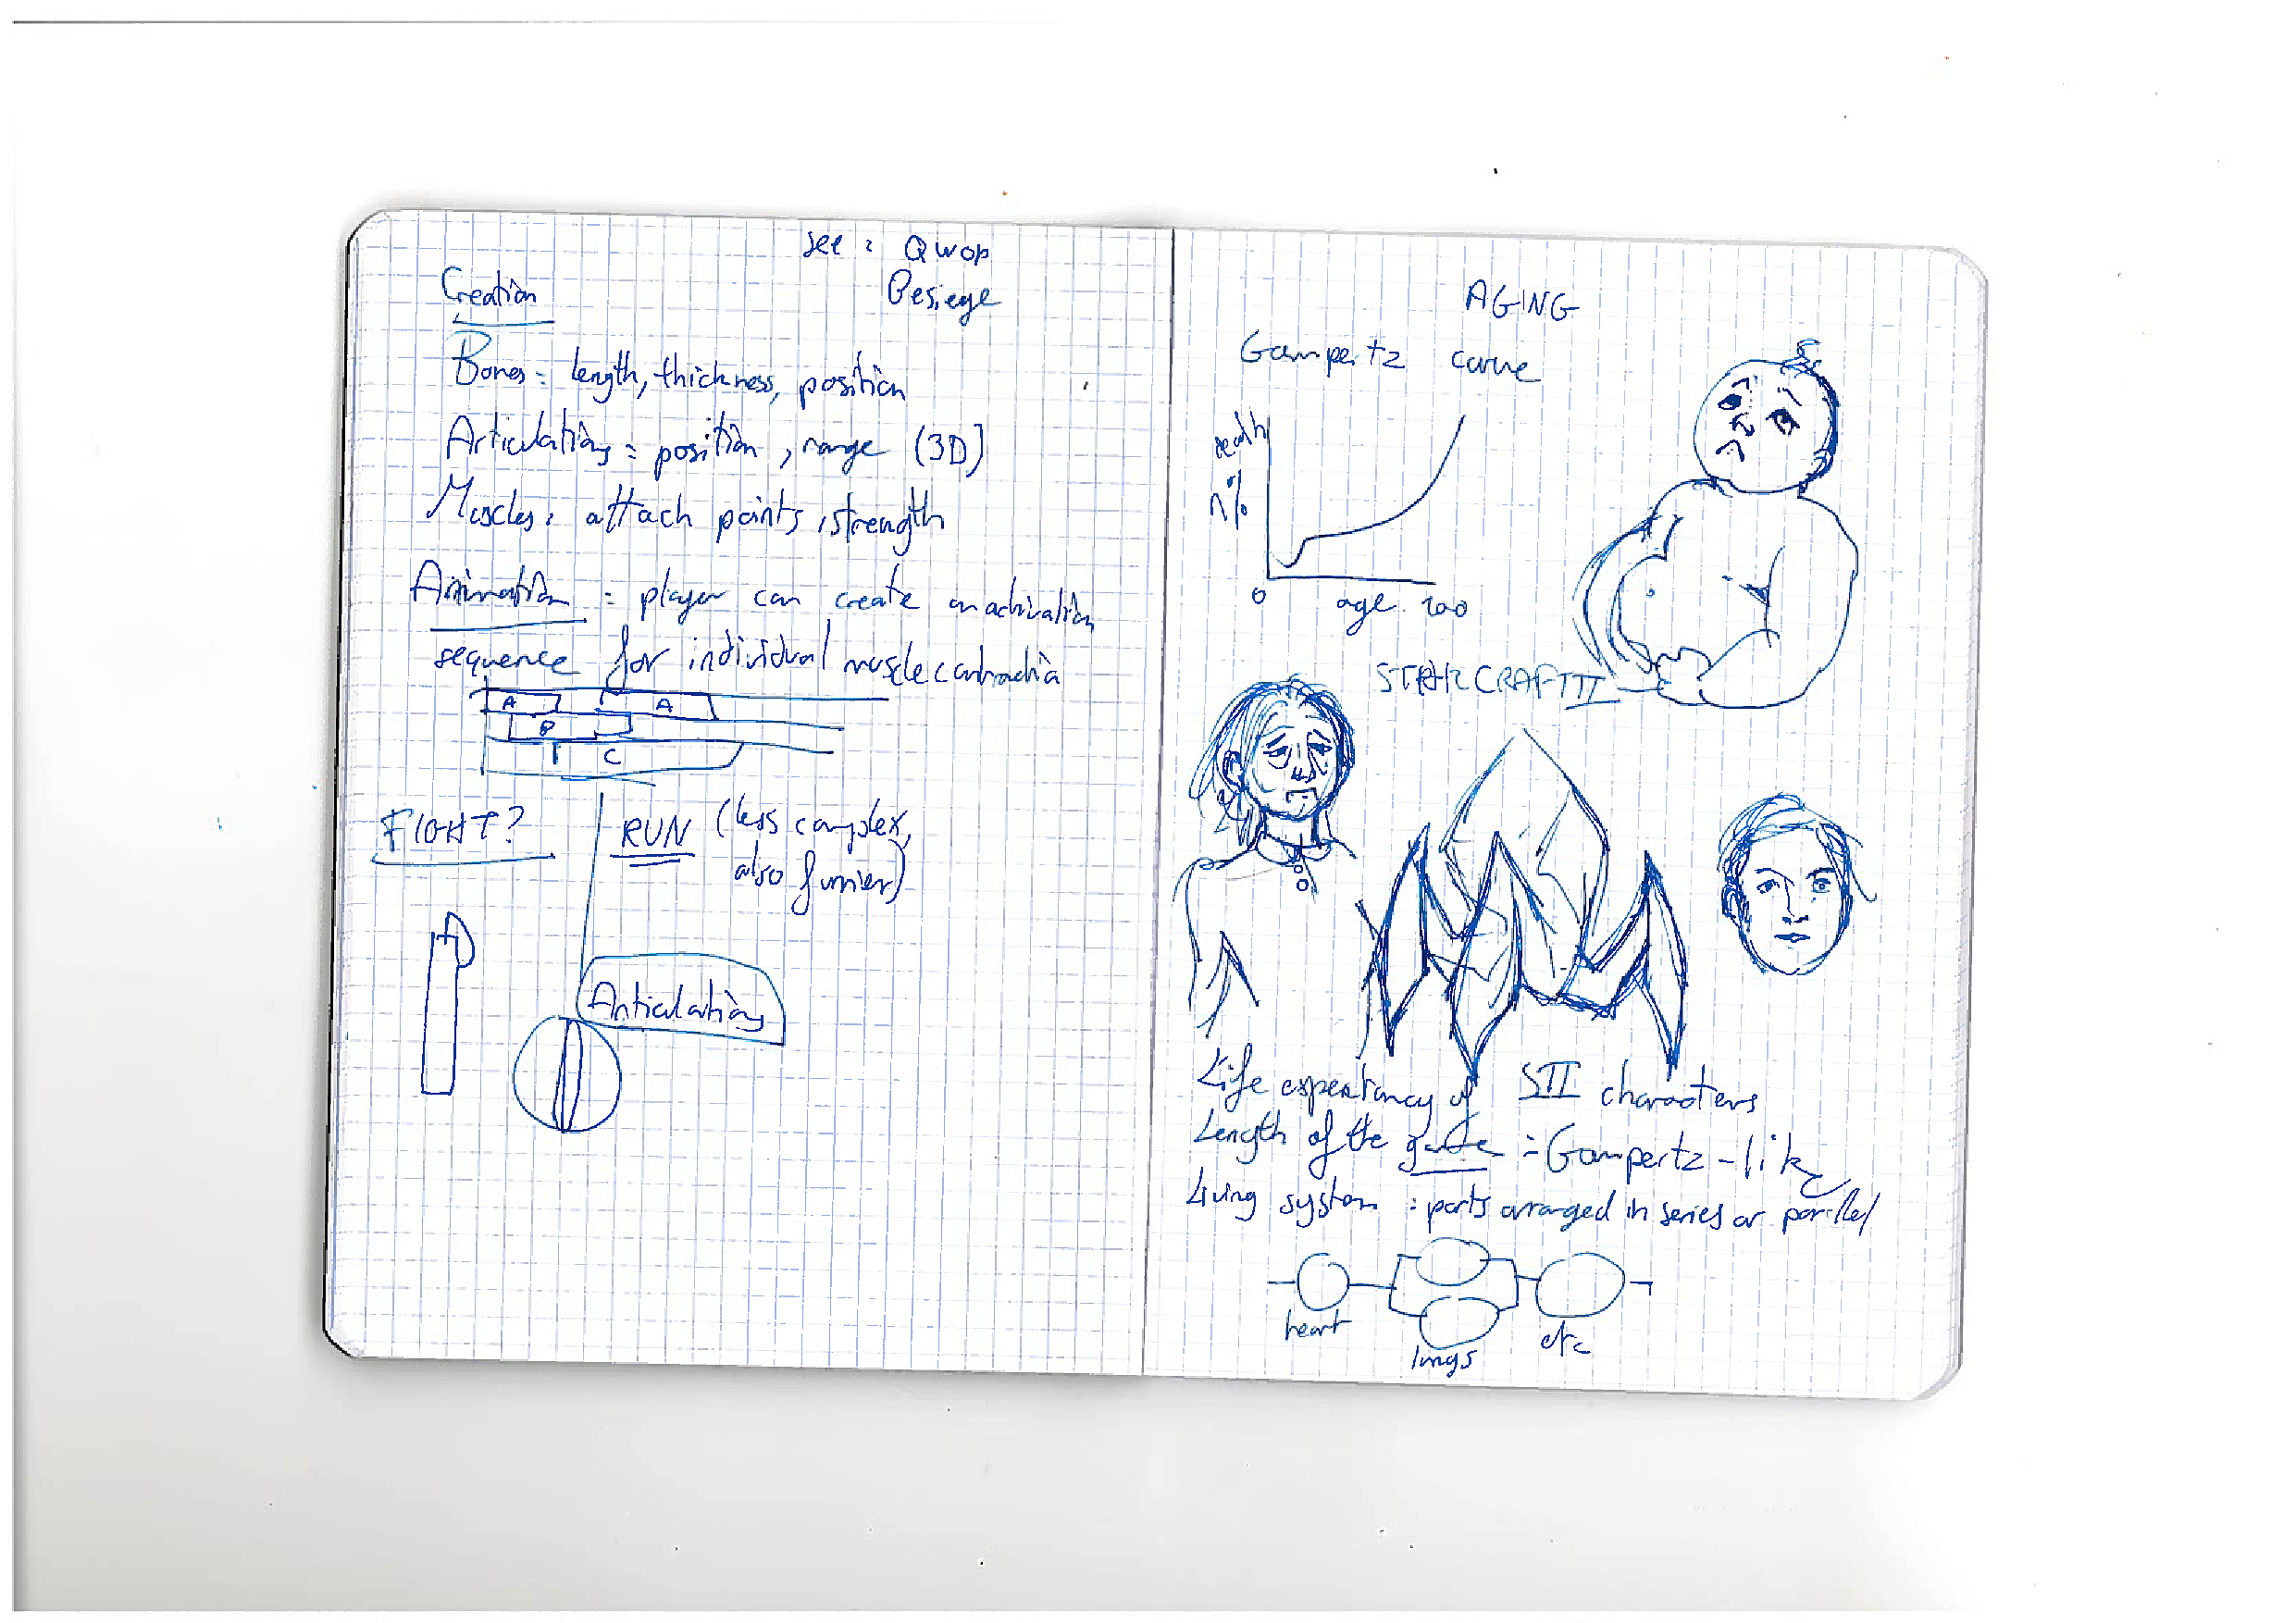 see : Qwop
Besiege
Creation
Bones = length, thickness, position
Articulations = position, range (3D)
Muscles : attach points, strength
Animation = player can create an activation
sequence for individual muscle contraction
A A
B
C
FIGHT?
RUN (less complex,
also funnier)
Articulations
AGING
Gompertz curve
death
n%
0 age 100
STARCRAFT II
Life expectancy of SII characters
Length of the game = Gompertz-like
Living system : parts arranged in series or parallel
heart
lungs
etc